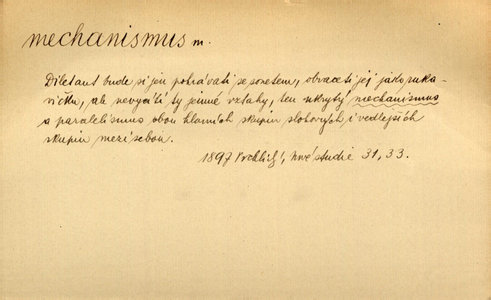 mechanismus m.
Diletant bude si jen pohrávati se sonetem, obraceti jej jako ruka-
vičku, ale nevycítí ty jemné vztahy, ten ukrytý mechanismus
a paralelismus obou hlavních skupin slohových i vedlejších
skupin mezi sebou.
1897 Vrchlický, Nové studie 31, 33.